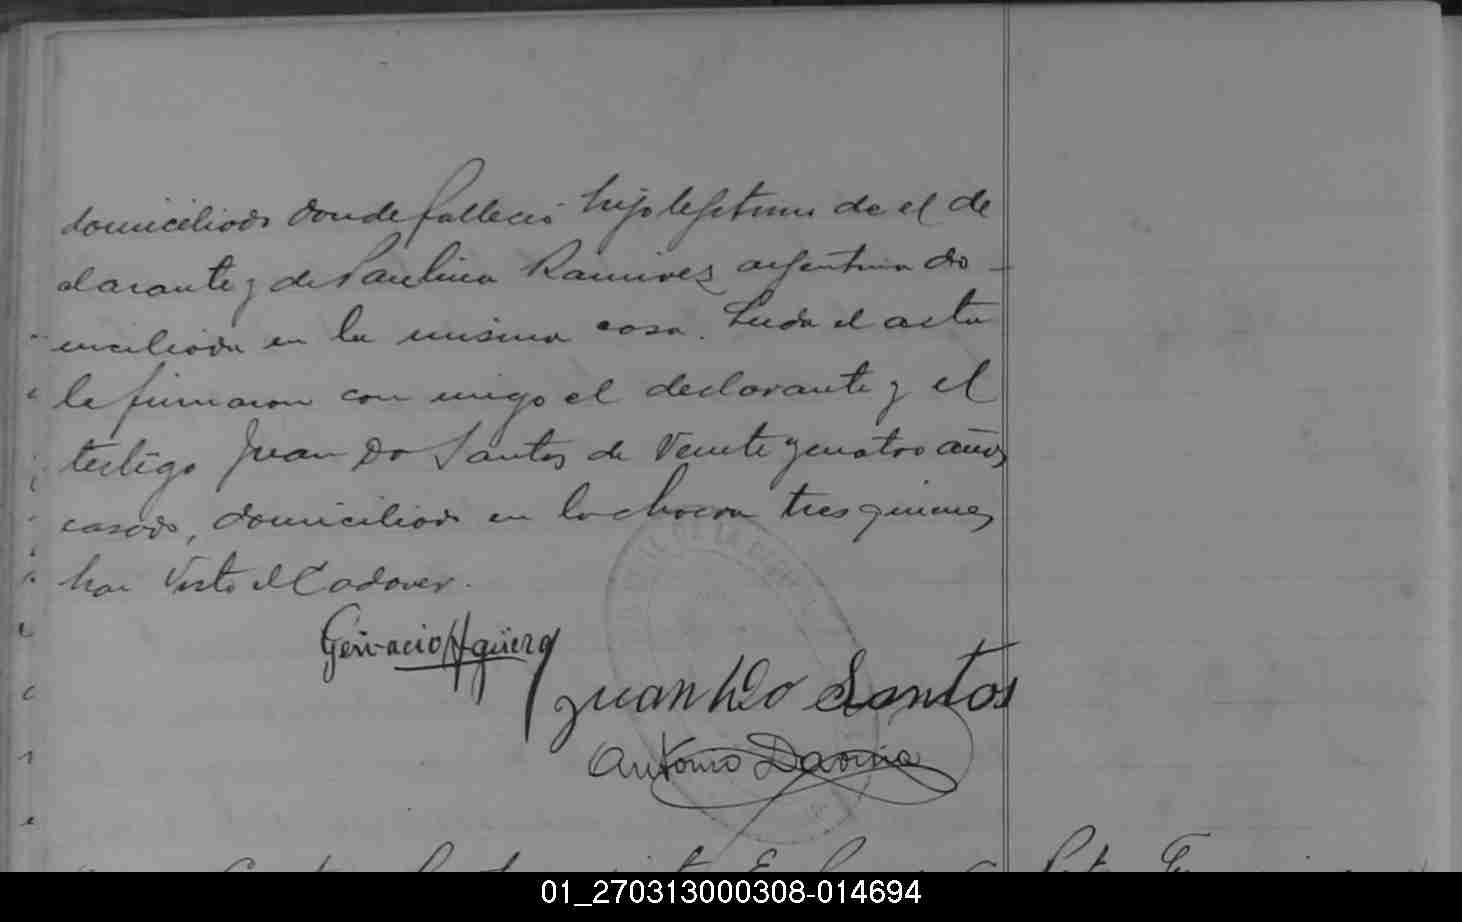 domiciliado donde falleció hijo lejitimo de el de
clarante y de Paulina Ramires argentina do-
miciliada en la misma casa. Leida el acta
la firmaron con migo el declarante y el
testigo Juan Do Santos de Veinte y cuatro años
casado, domiciliado en la chacra tres quienes
han Visto el Cadaver.
Gervacio Agüero
Juan Do Santos
Antonio
01_270313000308-014694